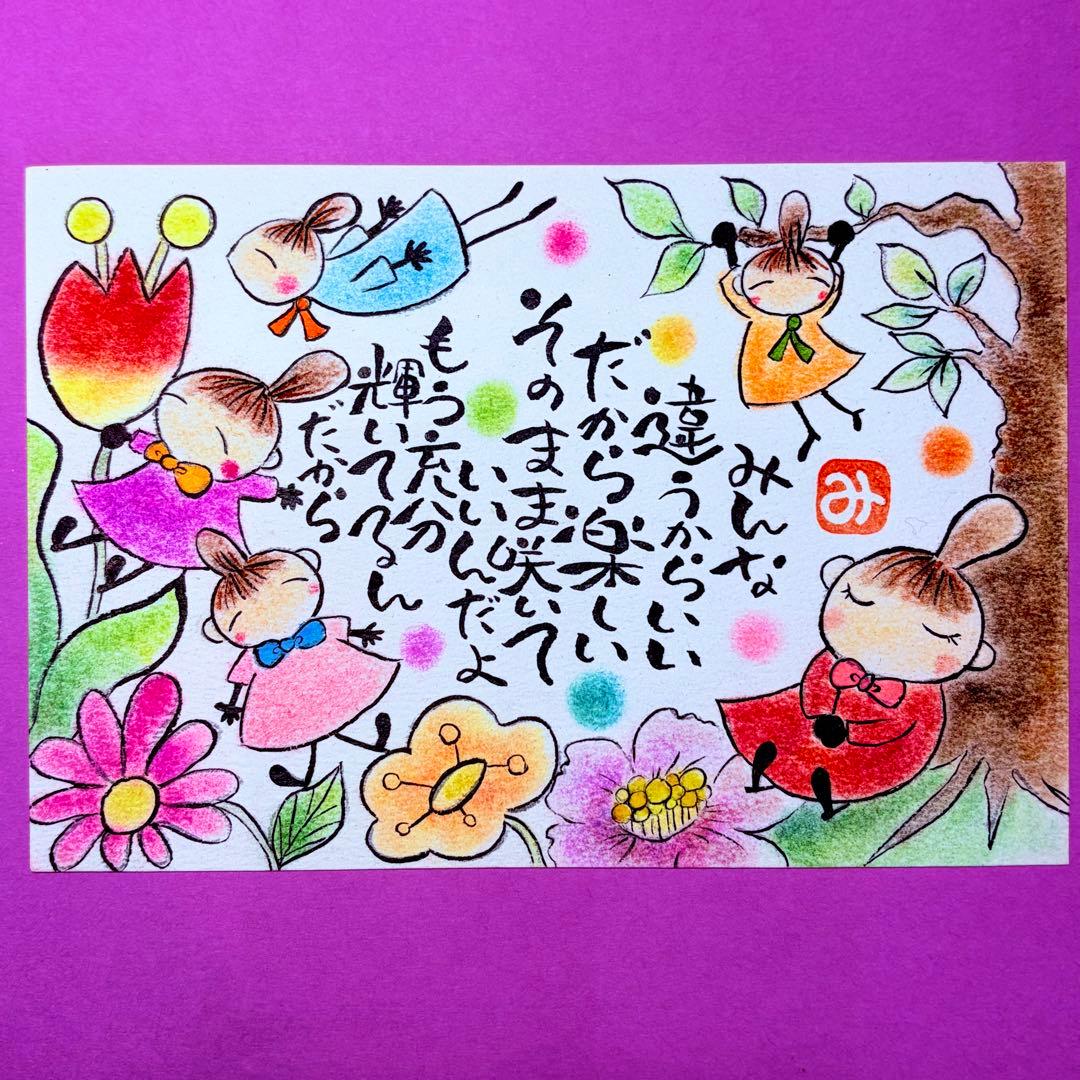 みんな
違うからいい
だから楽しい
そのまま咲いて
いいんだよ
もう充分
輝いてるん
だから
み